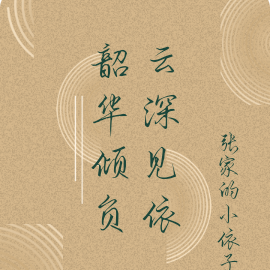 云深见依
韶华倾负
张家的小依子